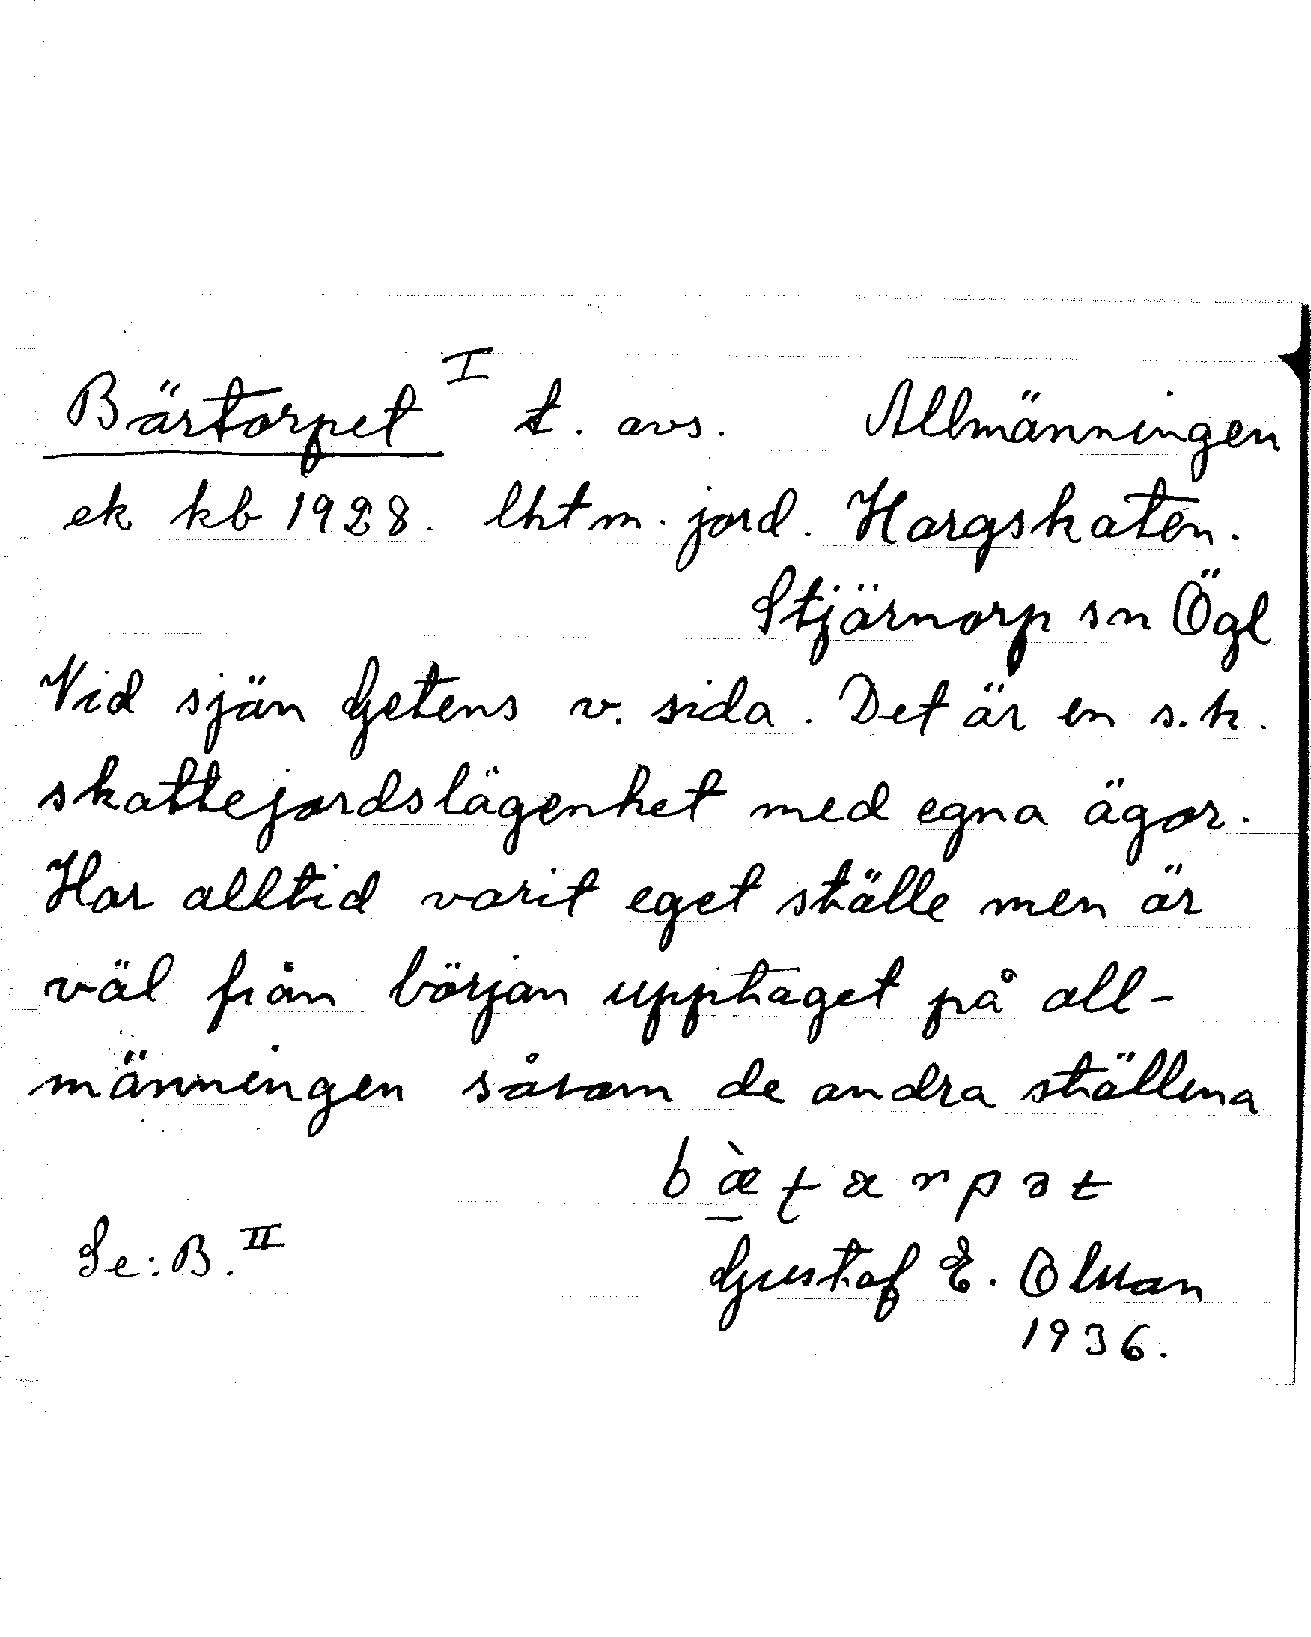 Bärtorpet I t. avs. Allmänningen
ek kb 1928. lht m. jord. Hargskaten.
Stjärnorp sn Ögl
Vid sjön Getens v. sida. Det är en s.k.
skattejordslägenhet med egna ägor.
Har alltid varit eget ställe men är
väl från början upptaget på all-
männingen såsom de andra ställena
bæ̀ʈarpət
Se: B. II
Gustaf E. Olsson
1936.